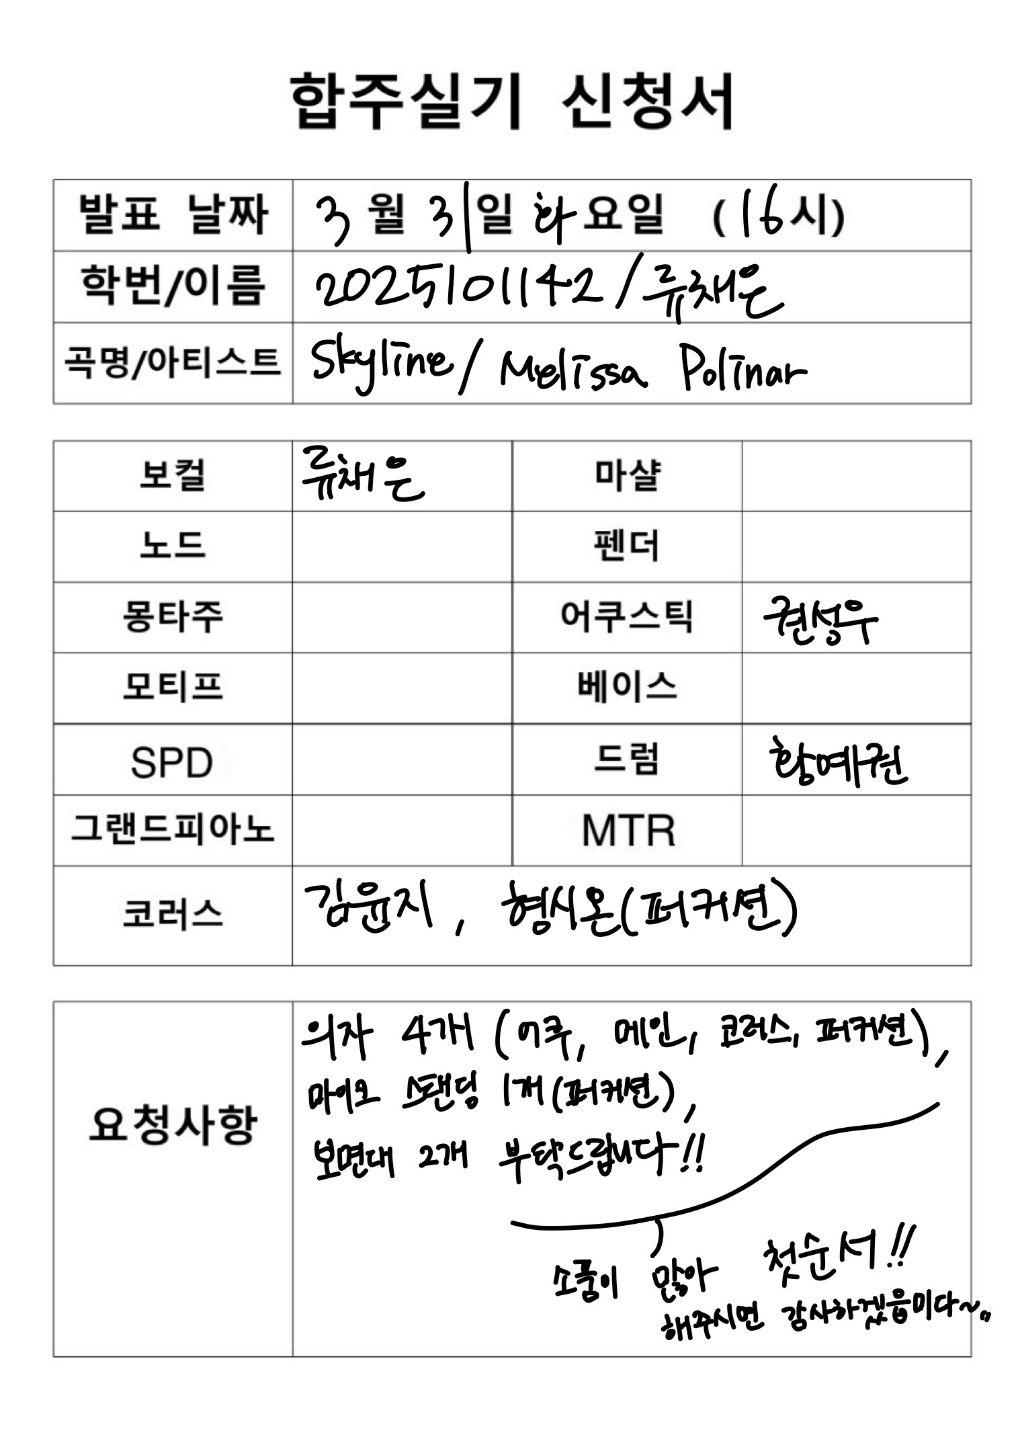 합주실기 신청서
발표 날짜 3월 31일 화요일 (16시)
학번/이름 2025101142/류채은
곡명/아티스트 Skyline/Melissa Polinar
보컬 류채은 마샬
노드 펜더
몽타주 어쿠스틱 권성우
모티프 베이스
SPD 드럼 황예권
그랜드피아노 MTR
코러스 김윤지, 형시온(퍼커션)
요청사항
의자 4개 (어쿠, 메인, 코러스, 퍼커션),
마이크 스탠딩 1개(퍼커션),
보면대 2개 부탁드립니다!!
소품이 많아 첫순서!!
해주시면 감사하겠습미다~..